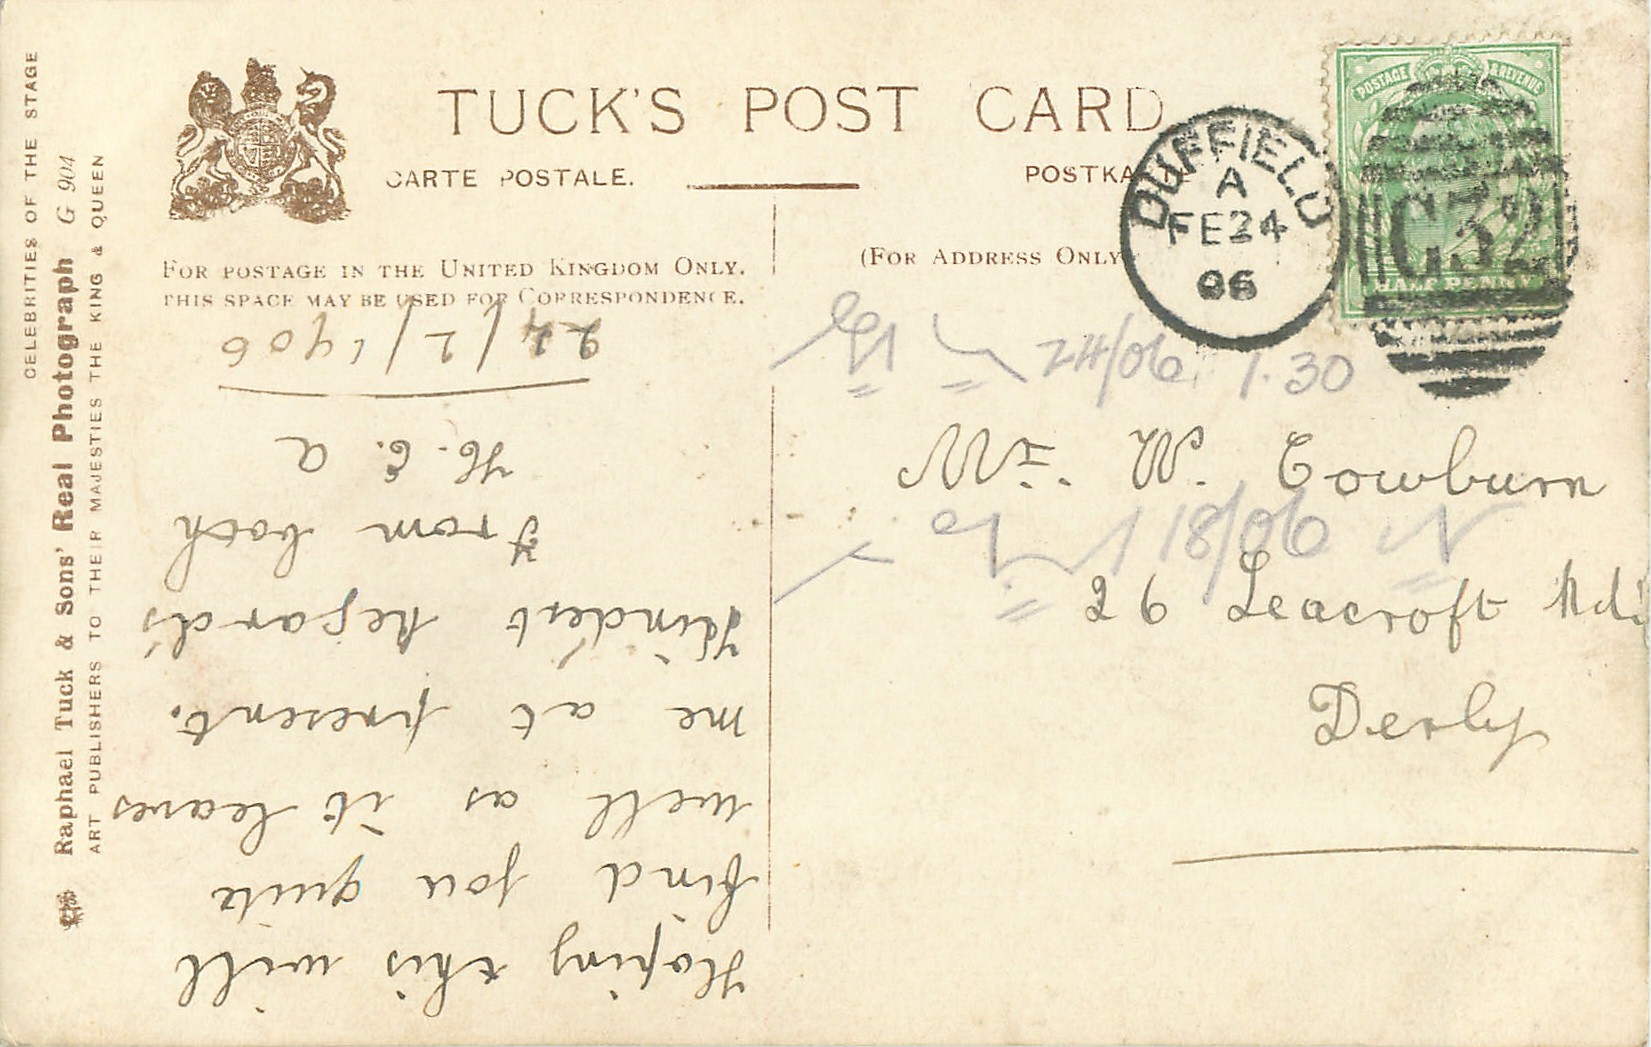 TUCK'S POST CARD
CARTE POSTALE.
POSTKARTE
FOR POSTAGE IN THE UNITED KINGDOM ONLY.
THIS SPACE MAY BE USED FOR CORRESPONDENCE.
(FOR ADDRESS ONLY
CELEBRITIES OF THE STAGE
Raphael Tuck & Sons' Real Photograph G 904
ART PUBLISHERS TO THEIR MAJESTIES THE KING & QUEEN
POSTAGE & REVENUE
HALF PENNY
C32
DUFFIELD
A
FE 24
06
24/06 1.30
18/06
Mr M. Cowburn
26 Leacroft Rd
Derby
Hoping this will
find you quite
well as it leaves
me at present.
Kindest regards
From both
H. E. a
24/2/1906